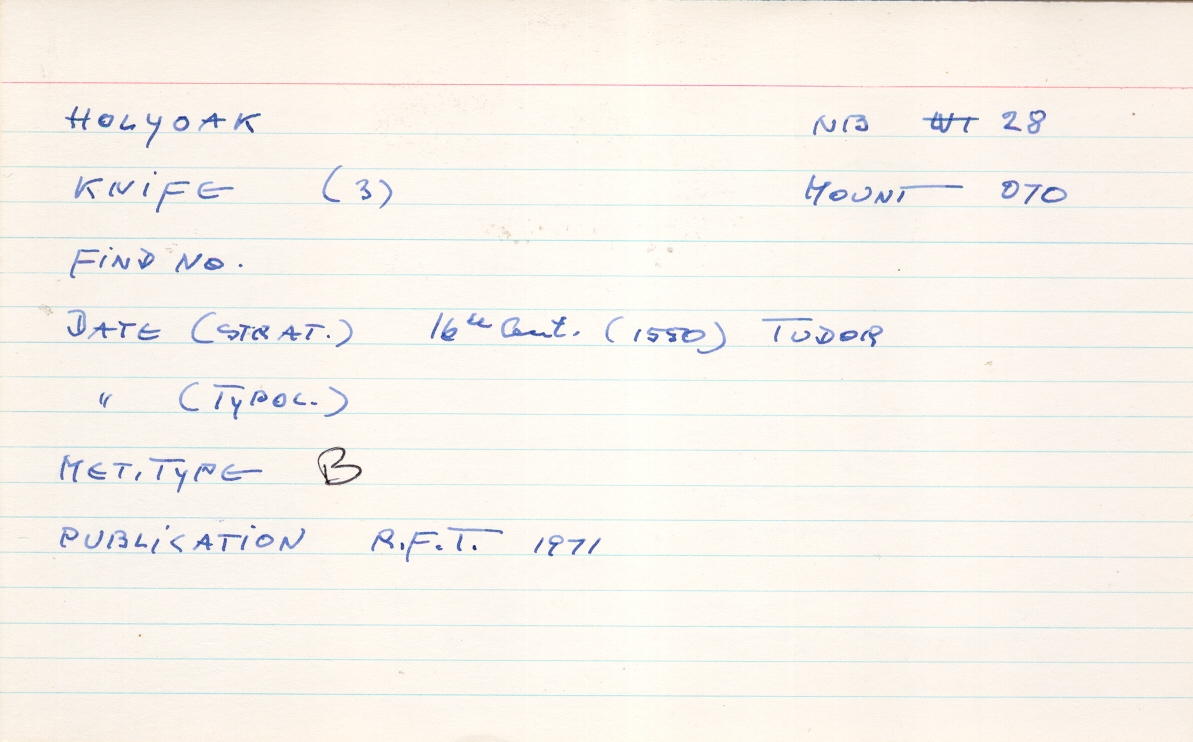 HOLYOAK NB 28
KNIFE (3) MOUNT 070
FIND NO.
DATE (STRAT.) 16th Cent. (1550) TUDOR
" (TYPOL.)
MET. TYPE B
PUBLICATION R.F.T. 1971